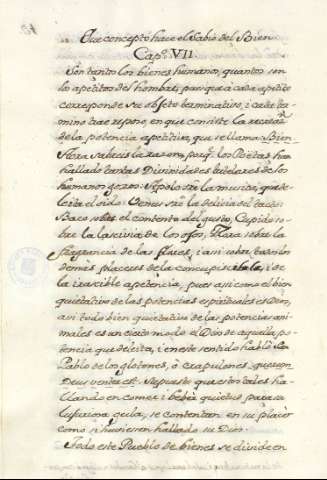 Que concepto hace el Sabio del Bien
Cap.º VII.
Son tantos los bienes humanos, quantos son
los apetitos del hombre, porque a cada apetito
corresponde su objeto terminativo, i cada ter-
mino trae reposo, en que consiste la
de la potencia apetitiva, que se llama Bien.
Aora sabreis la razon, porq. los Poetas han
hallado tantas Divinidades tutelares de los
humanos gozos: Apolo sobre la musica, que de-
leita el oido: Venus sobre la delicia del tacto:
Baco sobre el contento del gusto, Cupido so-
bre la lascivia de los ojos, Flora sobre la
fragrancia de las flores, i assi sobre todos los
demàs placeres de la concupiscible, i de
la irascible apetencia, pues asi como el bien
quietativo de las potencias espirituales es Dios,
asi todo bien quietativo de las potencias ani-
males es un cierto modo el Dios de aquella po-
tencia que deleita, i en este sentido hablò San
Pablo de los glotones, ò crapulones, quorum
Deus venter est. Supuesto que estos tales ha-
llando en comer i beber quietud para su
luxuriosa gula, se contentan en su placer
como si huviesen hallado su Dios.
Todo este Pueblo de bienes se divide en